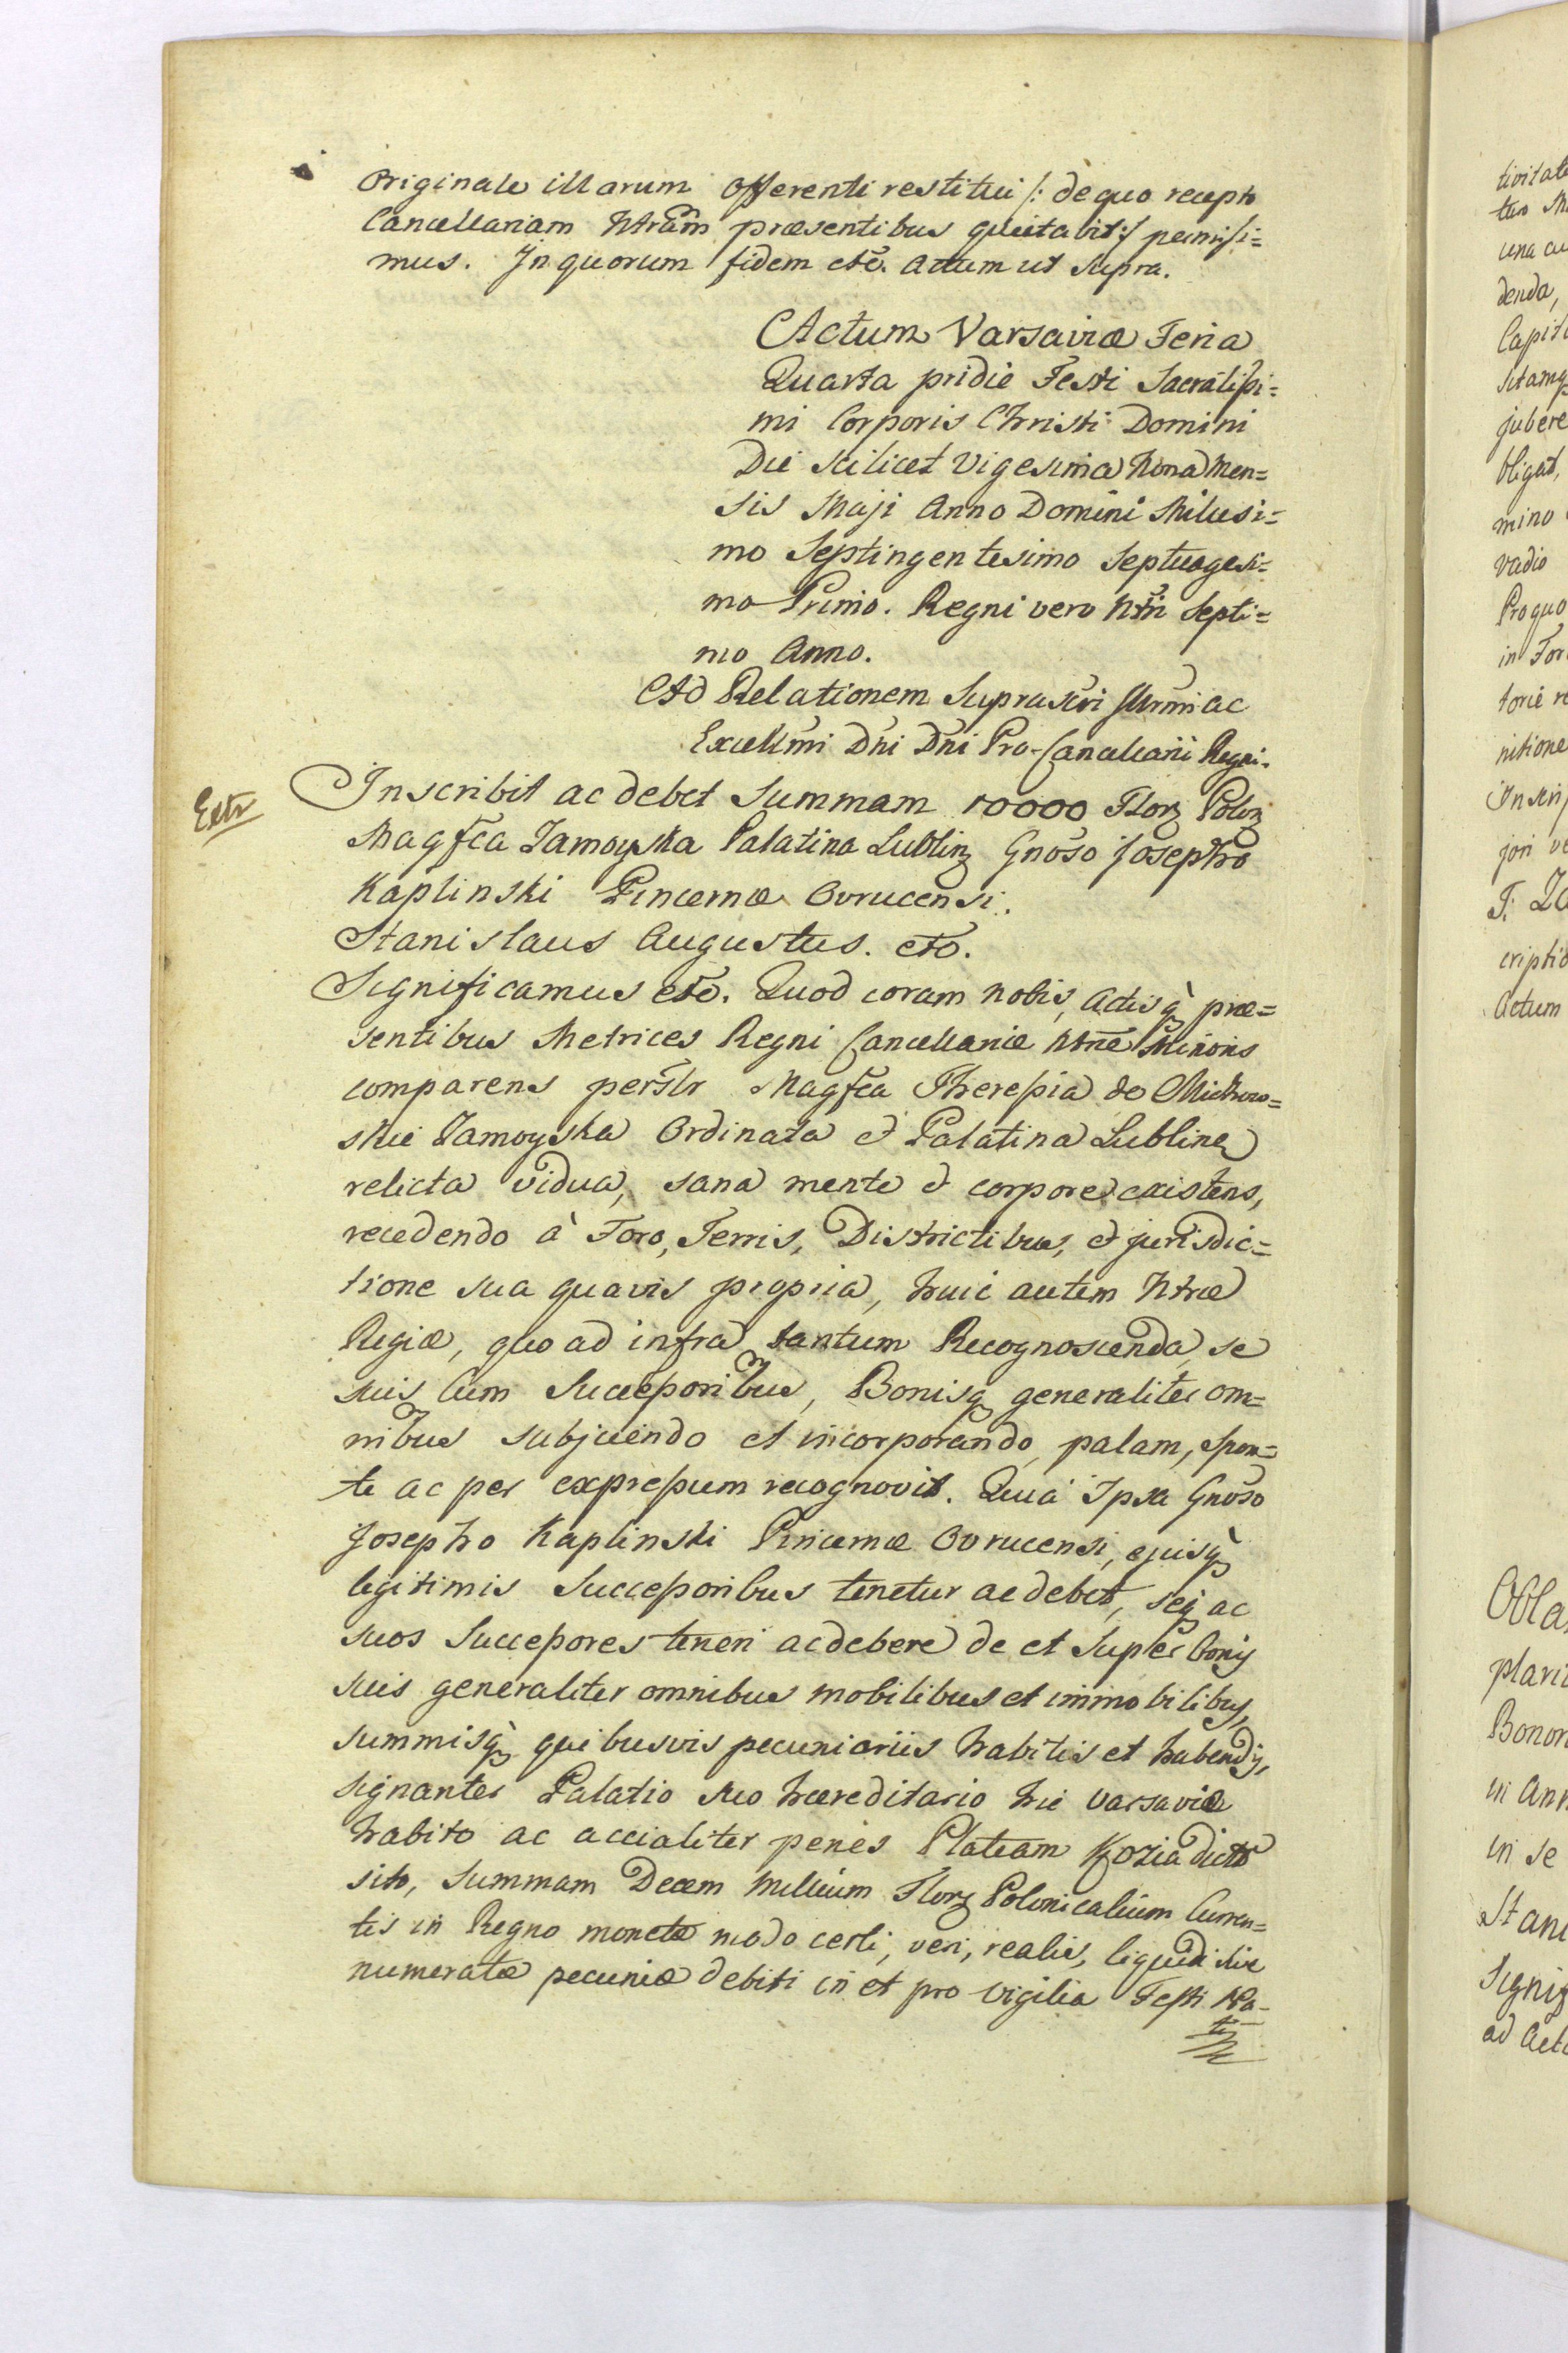 Originale illarum Offerenti restitui /: de quo recepto
Cancellariam Ntram præsentibus quietabit :/ permisi=
mus. In quorum fidem etc. Actum ut Supra.
Actum Varsaviæ Feria
Quarta pridie Festi Sacratissi=
mi Corporis Christi Domini
Die scilicet Vigesima Nona Men=
sis Maji Anno Domini Milesi=
mo Septingentesimo Septuagesi=
mo Primo. Regni vero Ntri Septi=
mo Anno.
Ad Relationem Suprascri Illrmi ac
Excellmi Dni Dni Pro-Cancellarii Regni.
Extr
Inscribit ac debet Summam 10000 Flor Polon
Magfca Zamoyska Palatina Lublin Gnoso Josepho
Kaplinski Pincernæ Ovrucensi.
Stanislaus Augustus. etc.
Significamus etc. Quod coram Nobis, Actisq præ=
sentibus Metrices Regni Cancellariæ Ntræ Minoris
comparens perslr Magfca Theressia de Michow=
skie Zamoyska Ordinata et Palatina Lublinen
relicta Vidua, sana mente et corpore existens,
recedendo à Foro, Terris, Districtibus, et jurisdic=
tione sua quavis propria, huic autem Ntræ
Regiæ, quo ad infra tantum Recognoscenda, se
suis cum Successoribus, Bonisq generaliter om=
nibus subjiciendo et incorporando, palam, spon=
te ac per expressum recognovit. Quia Ipsa Gnoso
Josepho Kaplinski Pincernæ Ovrucensi, ejusq
legitimis Successoribus tenetur ac debet, seq ac
suos Successores teneri ac debere de et super bonis
suis generaliter omnibus mobilibus et immobilibus,
summisq quibusvis pecuniariis habitis et habendis,
signanter Palatio suo hæreditario hic Varsaviæ
habito ac accialiter penes Plateam Kozia dicto
sito, Summam Decem Millium Flor Polonicalium Curren=
tis in Regno monetæ modo certi, veri, realis, liquidi sive
numeratæ pecuniæ debiti in et pro Vigilia Festi Na-
ti
tivitate
una cu
denda,
Capit
jubere
bligat,
mino
Vadio
Pro quo
in For
torie re
nitione
Inscrip
jori ve
F. Za
criptio
Actum
Obla
plari
Bonor
in Ann
in se
Stani
Signif
ad Acta